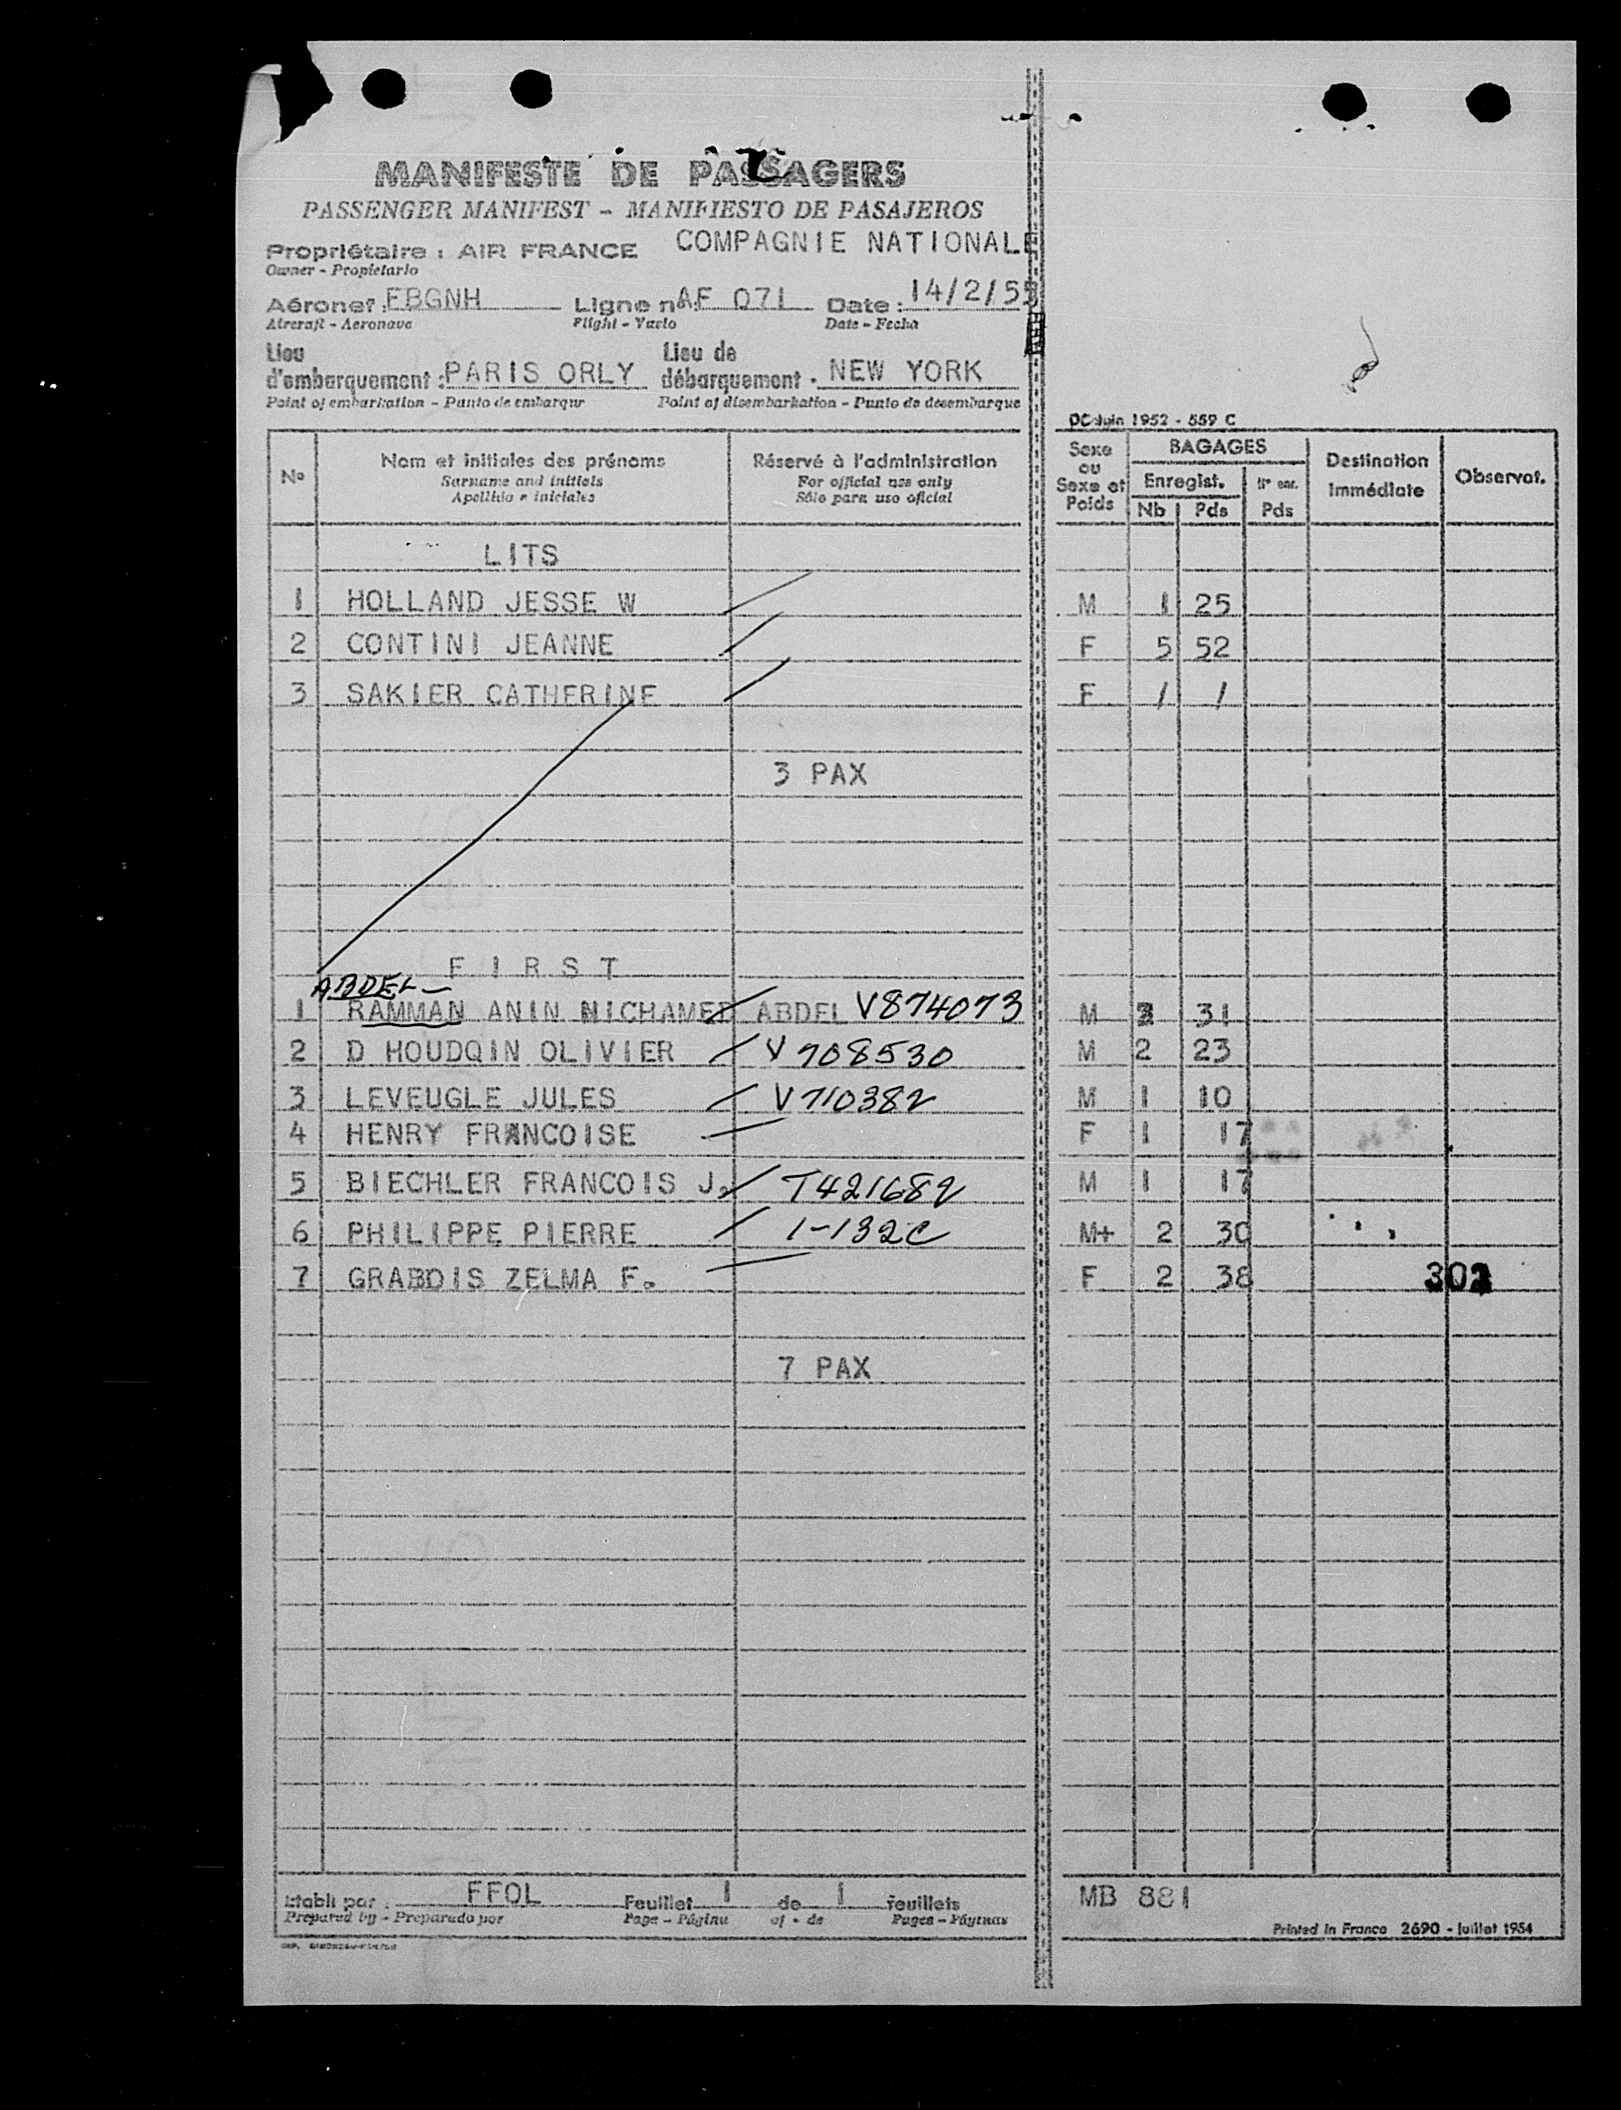 MANIFESTE DE PASSAGERS
PASSENGER MANIFEST - MANIFIESTO DE PASAJEROS
Propriétaire : AIR FRANCE COMPAGNIE NATIONALE
Owner - Propietario
Aéronef : FBGNH Ligne no AF 071 Date : 14/2/55
Aircraft - Aeronave Flight - Vuelo Date - Fecha
Lieu d'embarquement : PARIS ORLY Lieu de débarquement : NEW YORK
Point of embarkation - Punto de embarque Point of disembarkation - Punto de desembarque
DC Juin 1952 - 559 C
No Nom et initiales des prénoms Réservé à l'administration Sexe ou Sexe et Poids BAGAGES Destination immédiate Observat.
Surname and initials For official use only Enregist. No enr.
Apellido e iniciales Sólo para uso oficial Nb Pds Pds
LITS
1 HOLLAND JESSE W M 1 25
2 CONTINI JEANNE F 5 52
3 SAKIER CATHERINE F / /
3 PAX
F I R S T
ABDEL-
1 RAMMAN ANIN MICHAMED ABDEL V874073 M 31
2 D HOUDQIN OLIVIER V708530 M 2 23
3 LEVEUGLE JULES V710382 M 1 10
4 HENRY FRANCOISE F 1 17
5 BIECHLER FRANCOIS J. T421682 M 1 17
6 PHILIPPE PIERRE 1-132C M+ 2 30
7 GRABDIS ZELMA F. F 2 38
7 PAX
Etabli par : FFOL Feuillet 1 de 1 feuillets MB 881
Prepared by - Preparado por Page - Página of - de Pages - Páginas
Printed in France 2690 - Juillet 1954